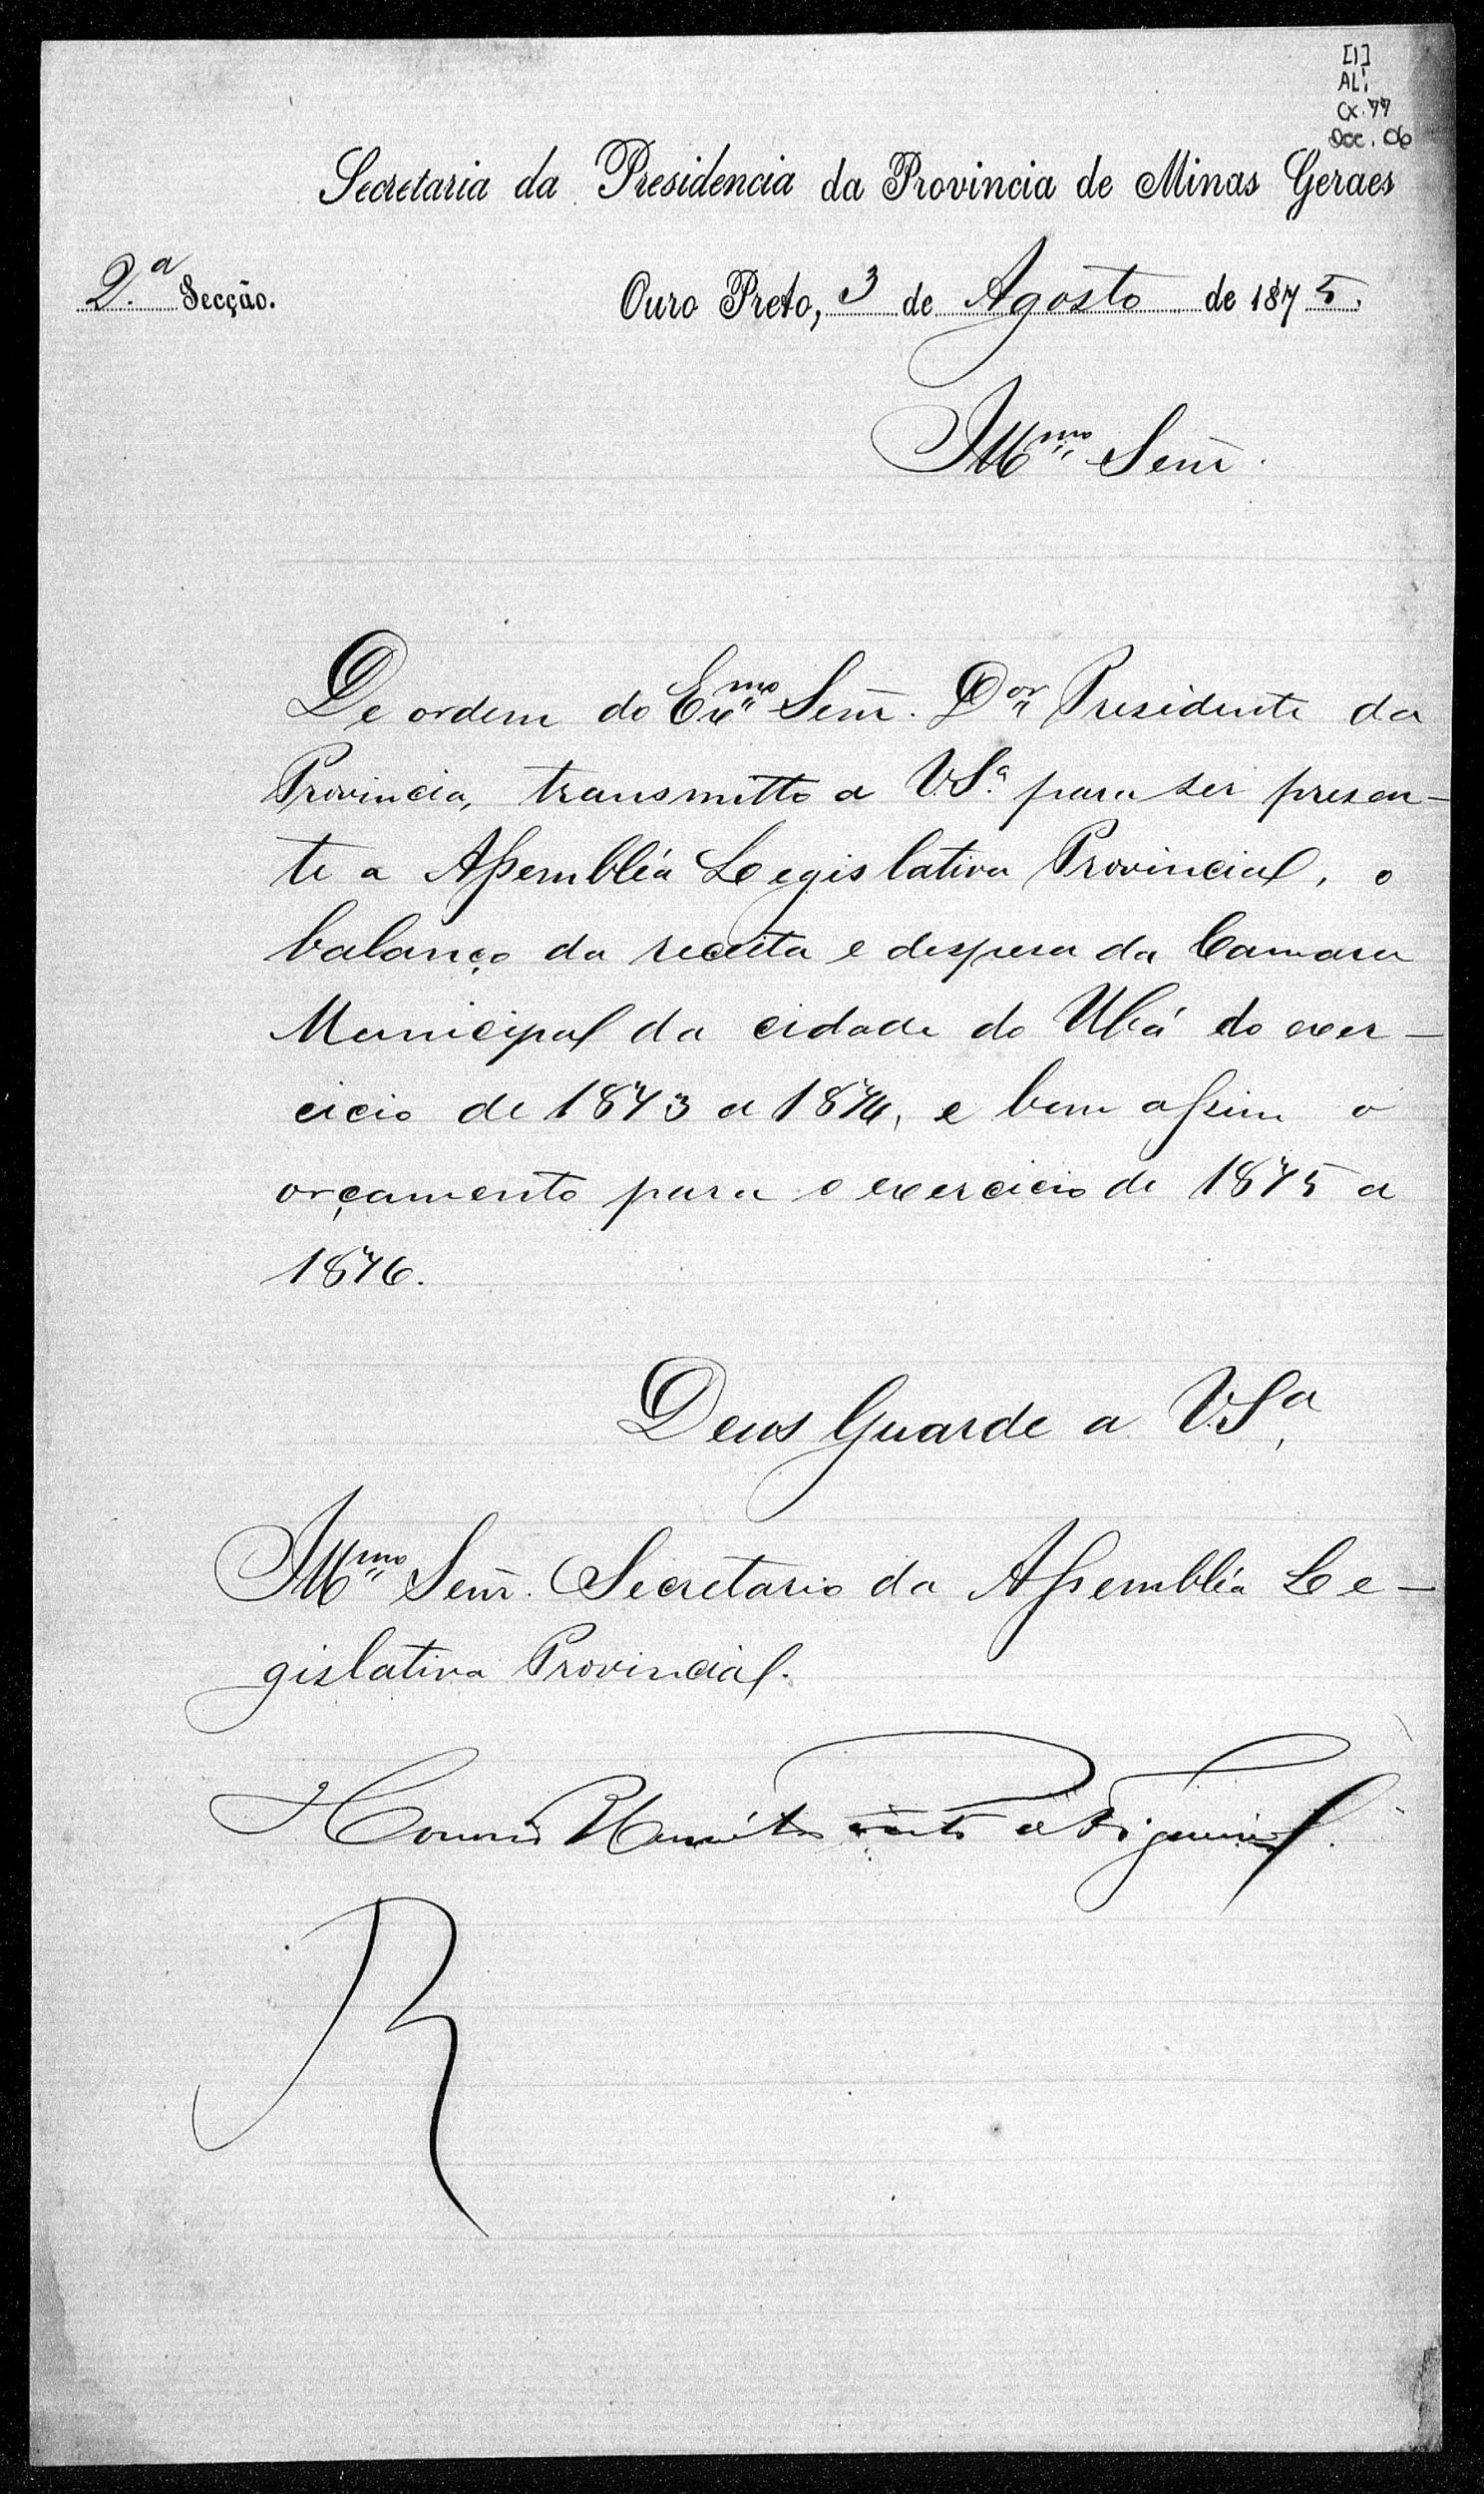 [1]
AL1
Cx. 77
Doc. 06
Secretaria da Presidencia da Provincia de Minas Geraes
2.ª Secção.
Ouro Preto, 3 de Agosto de 1875.
Illmo Senr.
De ordem do Exmo Senr. Dor Presidente da
Provincia, transmitto a V.Sª. para ser presen-
te a Assembléa Legislativa Provincial, o
balanço da receita e despesa da Camara
Municipal da cidade do Ubá do exer-
cicio de 1873 a 1874, e bem assim o
orçamento para o exercicio de 1875 a
1876.
Deus Guarde a V.Sª.
Illmo Senr. Secretario da Assembléa Le-
gislativa Provincial.